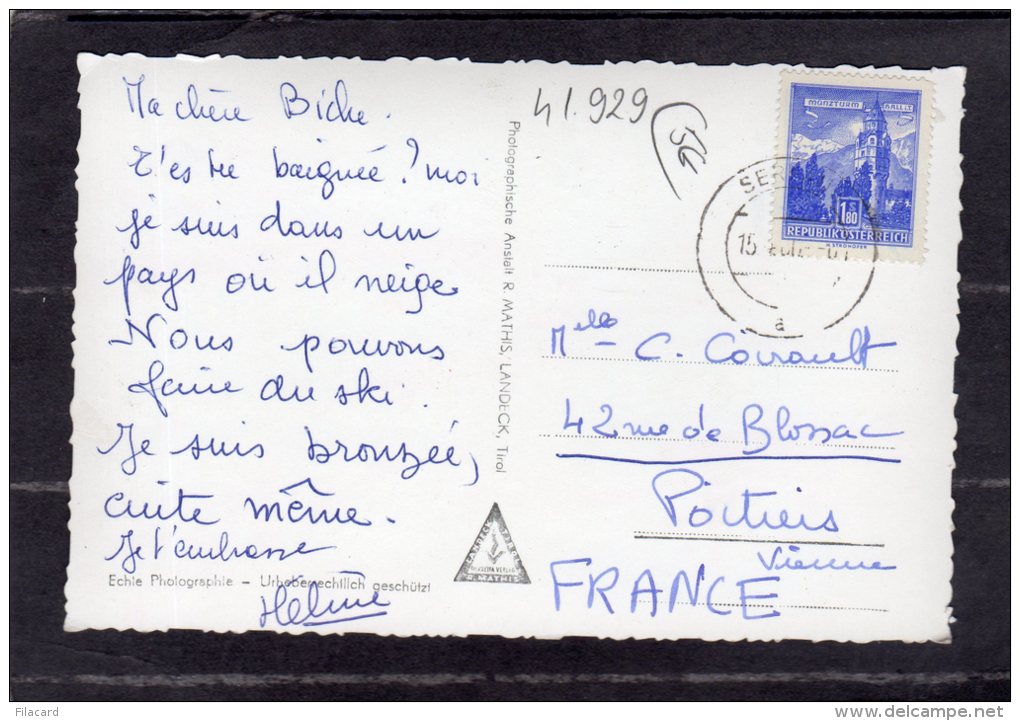 Ma chère Biche.
T'es tu baignée? moi
je suis dans un
pays où il neige
Nous pouvons
faire du ski.
Je suis bronzée,
cuite même.
Je t'embrasse
Hélène
Echte Photographie – Urheberrechtlich geschützt
Photographische Anstalt R. MATHIS, LANDECK, Tirol
R. MATHIS
41.929
56
MÜNZTURM HALL I.T.
S 1.80
REPUBLIK ÖSTERREICH
SER
15
a
Melle C.
42 rue de Blossac
Poitiers
Vienne
FRANCE
Filacard
www.delcampe.net